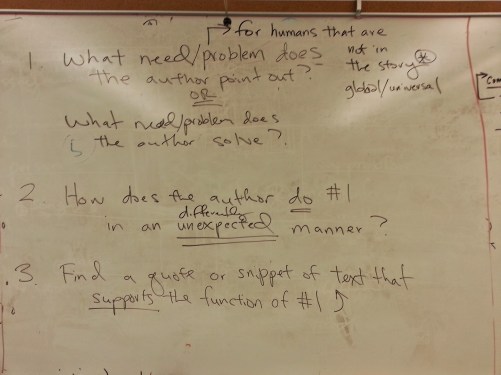 for humans that are
not in
the story *
global/universal
1. What need/problem does
the author point out?
OR
What need/problem does
the author solve?
2. How does the author do #1
different
in an unexpected manner?
3. Find a quote or snippet of text that
supports the function of #1